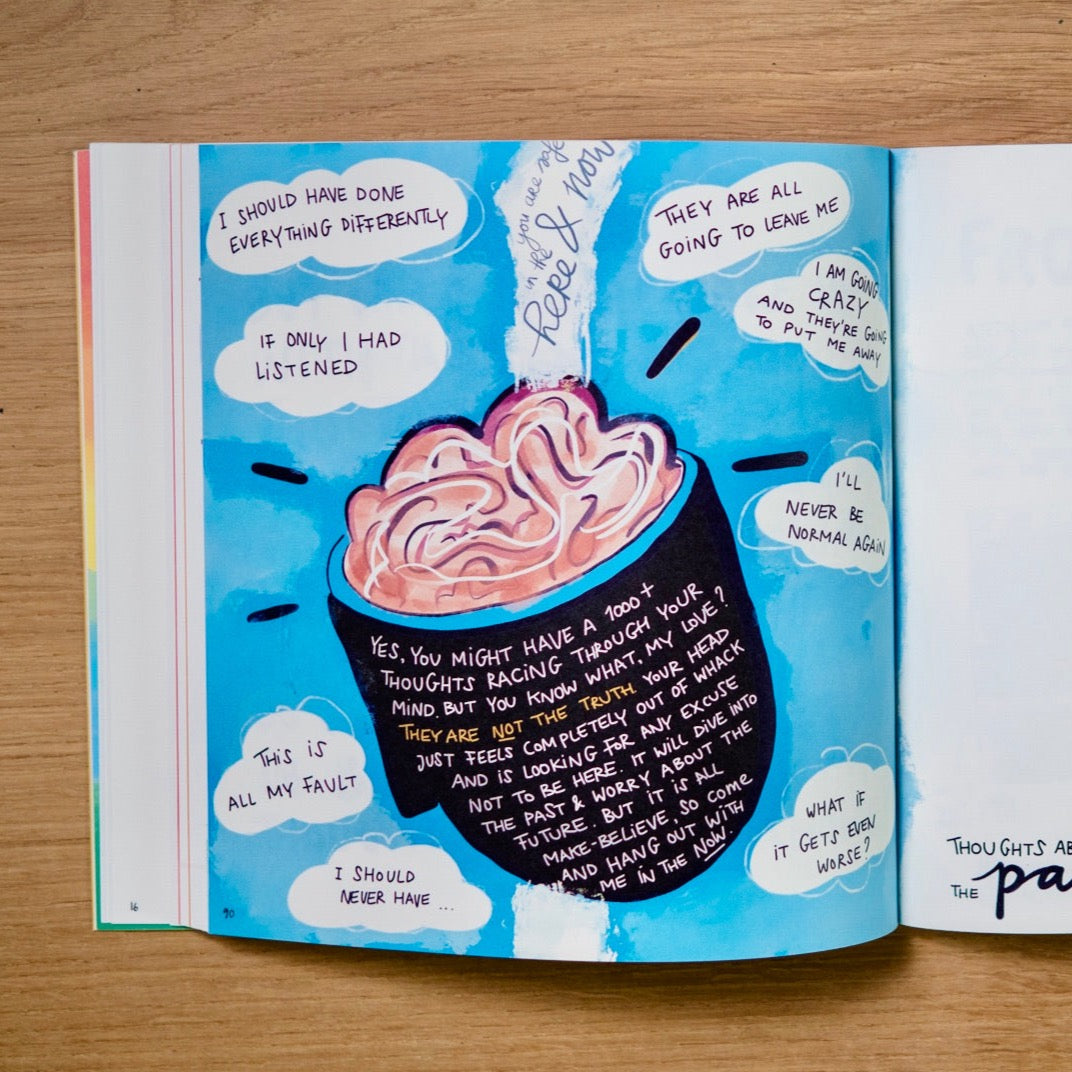 I SHOULD HAVE DONE
EVERYTHING DIFFERENTLY
IF ONLY I HAD
LISTENED
you are safe
in the
here & now
THEY ARE ALL
GOING TO LEAVE ME
I AM GOING
CRAZY
AND THEY'RE GOING
TO PUT ME AWAY
I'LL
NEVER BE
NORMAL AGAIN
YES, YOU MIGHT HAVE A 1000+
THOUGHTS RACING THROUGH YOUR
MIND. BUT YOU KNOW WHAT, MY LOVE?
THEY ARE NOT THE TRUTH. YOUR HEAD
JUST FEELS COMPLETELY OUT OF WHACK
AND IS LOOKING FOR ANY EXCUSE
NOT TO BE HERE. IT WILL DIVE INTO
THE PAST & WORRY ABOUT THE
FUTURE. BUT IT IS ALL
MAKE-BELIEVE, SO COME
AND HANG OUT WITH
ME IN THE NOW.
THIS IS
ALL MY FAULT
I SHOULD
NEVER HAVE ...
WHAT IF
IT GETS EVEN
WORSE?
16
90
THOUGHTS AB
THE pa